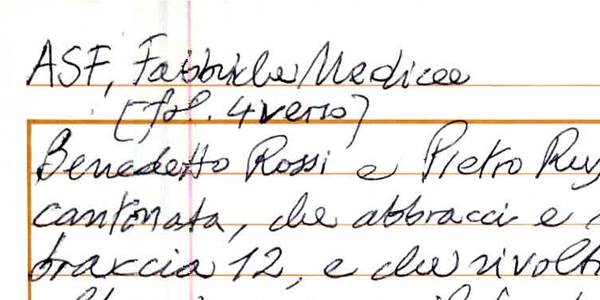 ASF, Fabbriche Medicee
[fol. 4 verso]
Benedetto Rossi e Pietro
cantonata, che abbracci e
braccia 12, e che rivolti